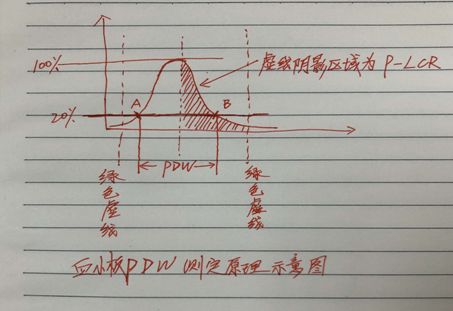 100%
虚线阴影区域为 P-LCR
A
B
20%
PDW
绿色虚线
绿色虚线
血小板PDW测定原理示意图